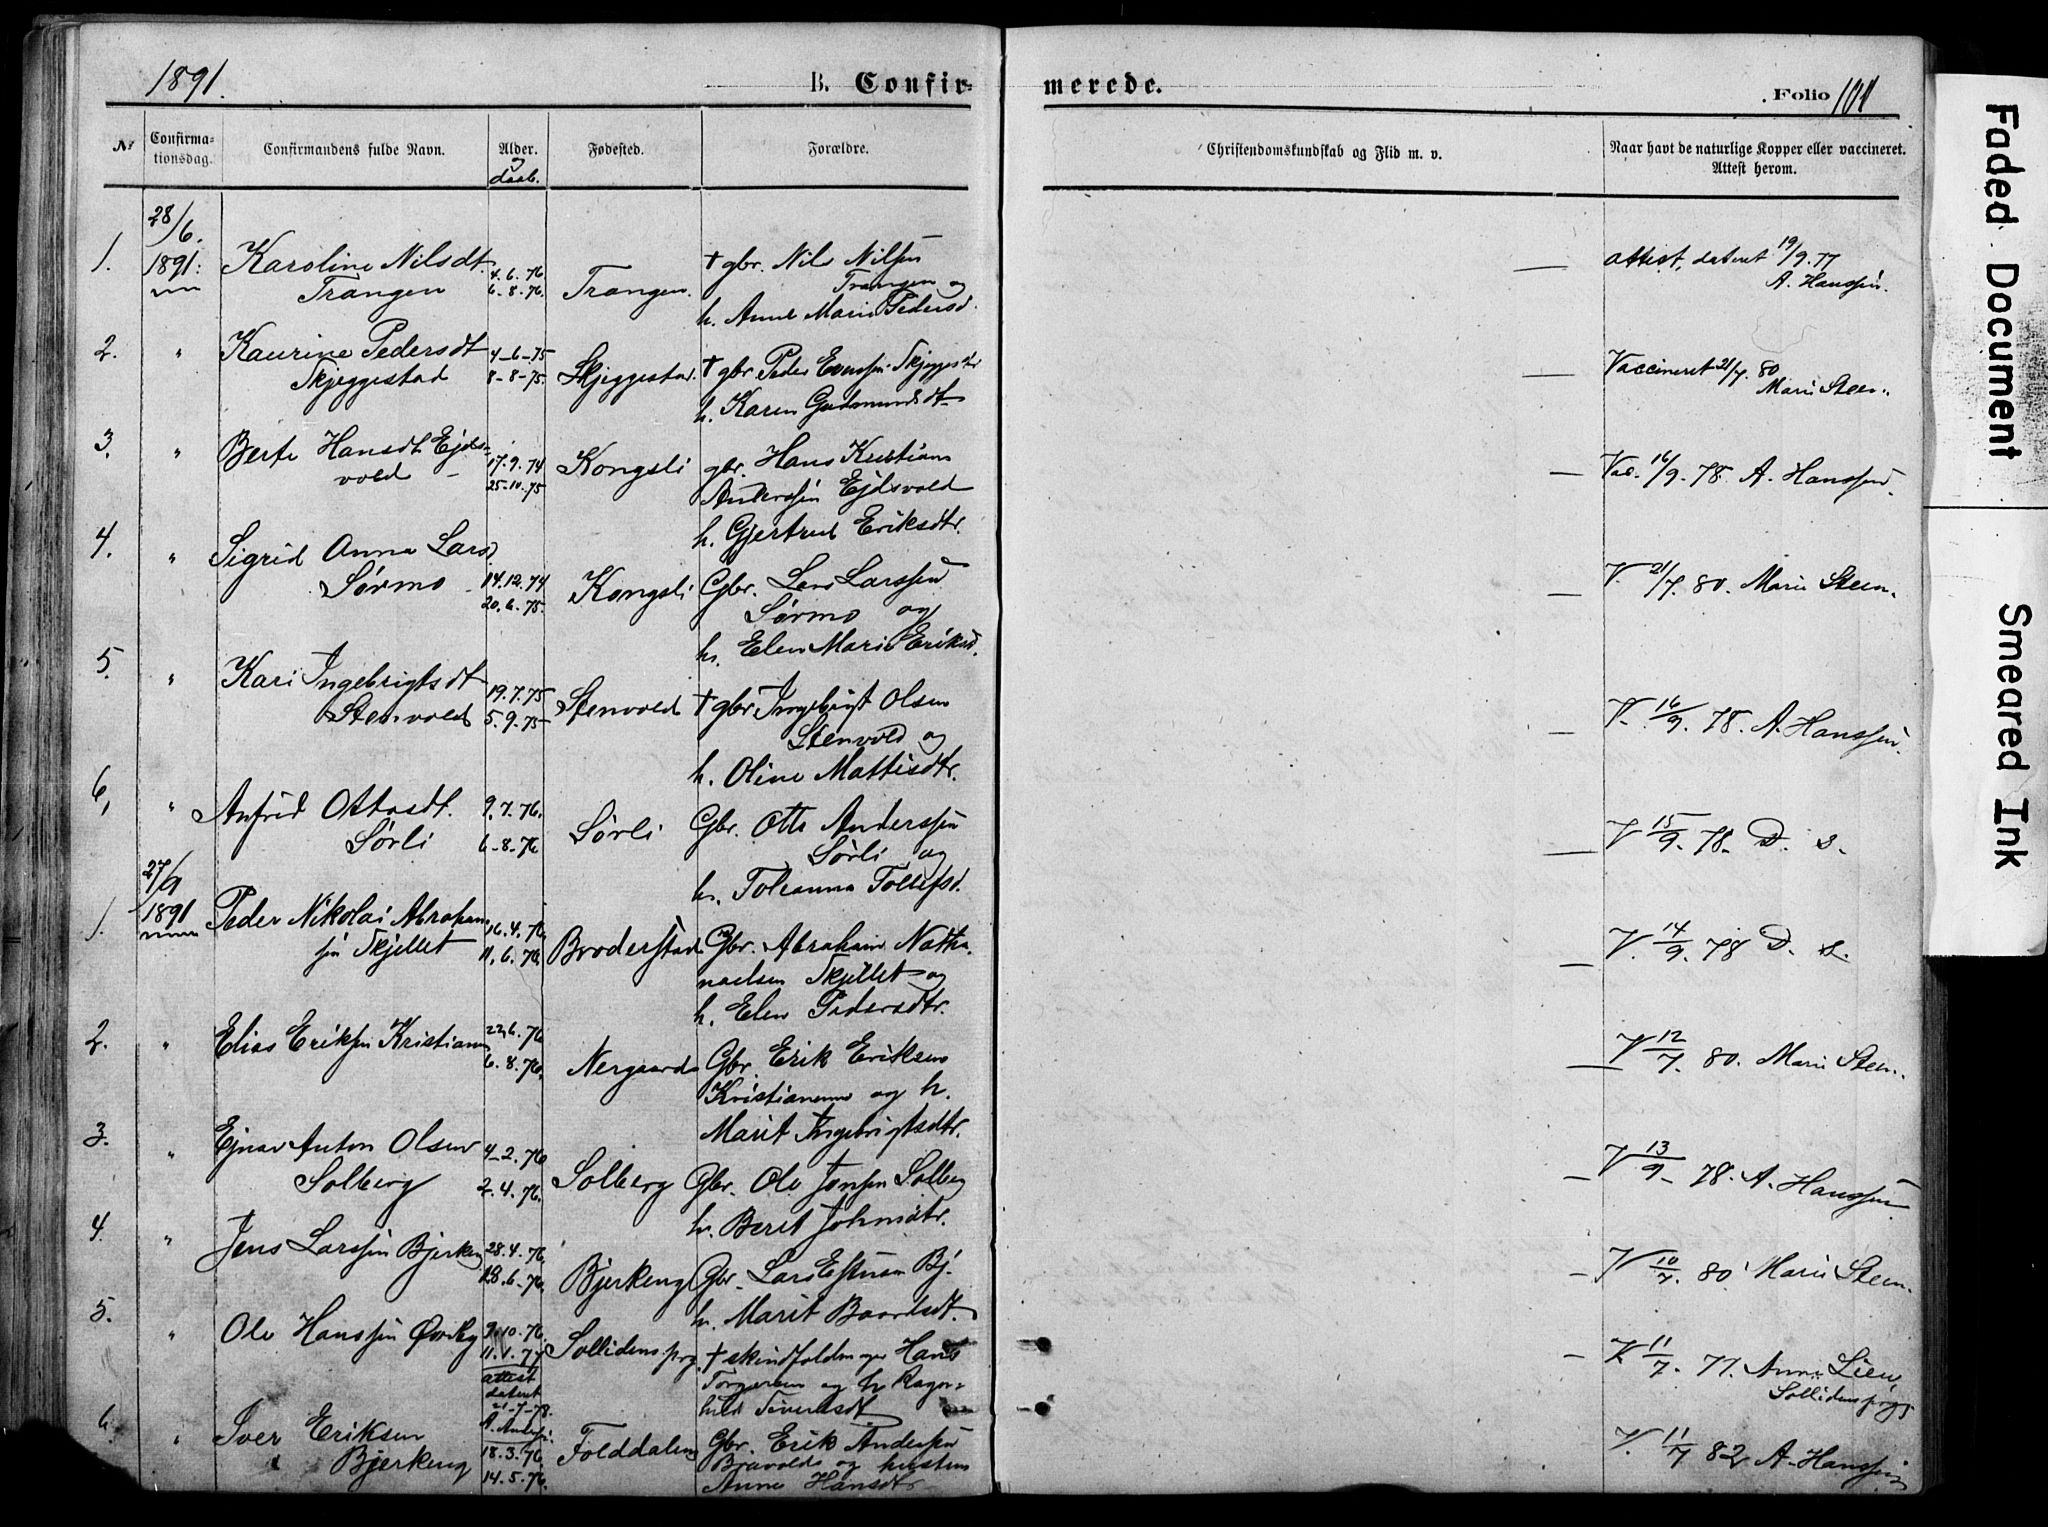 1891.
B. Confir-
merede.
Folio 101
Nr
Confirma-
tionsdag.
Confirmandens fulde Navn.
Alder.
daab.
Fødested.
Forældre.
Christendomskundskab og Flid m. v.
Naar havt de naturlige Kopper eller vaccineret.
Attest herom.
28/6.
1. 1891. Karoline Nilsdt. 4.6.76 † gbr. Nils Nilsen — attest, dateret 19/9.77
Trangen 6-8.76. Trangen. Trangen og A. Hanssen.
h. Anne Marie Pedersd.
2. " Kaurine Pedersdt 4-6-75 † gbr. Peder Skjeggestad — Vaccineret 21/7. 80
Skjeggestad 8-8-75. Skjeggestad. h. Karen Gudmundsdt Marie Steen.
3. " Berte Hansdt Ejds- 17.9.74 Kongsli gbr. Hans Kristian — Vac. 16/9.78. A. Hanssen.
vold 25-10.75 Anderssen Ejdsvold
h. Gjertrud Eriksdtr.
4. " Sigrid Anna Larsd 14.12.74 Kongsli Gbr. Lars Larssen — V. 21/7.80. Marie Steen.
Sørmo 20.6.75. Sørmo og
h. Elen Marie Eriksd.
5. " Kari Ingebrigtsdt 19.7.75 Stenvold † gbr. Ingebrigt Olsen — V. 16/9.78. A. Hanssen.
Stenvold 5.9.75 Stenvold og
h. Oline Mattisdtr.
6, " Anfrid Ottosdt. 9.7.76. Sørli Gbr. Otto Anderssen — V 15/9.78. D. S.
Sørli 6-8-76 Sørli og
27/9 h. Johanna Tollefsd.
1. 1891 Peder Nikolai Abraham- 16.4.76. Broderstad Gbr. Abraham Natha- — V. 14/9.78 D. S.
sen Skjellet 11.6.76. naelsen Skjellet og
h. Elen Pedersdtr.
2. " Elias Eriksen Kristiansen 22.6.76 Nergaard Gbr. Erik Eriksen — V 12/7. 80. Marie Steen.
6.8.76. og h.
Marit Ingebrigtsdtr.
3. " Ejnar Anton Olsen 4-2.76 Solberg Gbr. Ole Jonsen Solberg — V 13/9.78. A. Hanssen.
Solberg 2.4.76. h. Berit Johnsdtr.
4. " Jens Larssen Bjerkeng 28.4.76. Bjerkeng Gbr. Lars Estensen Bj. — V 10/7. 80 Marie Steen.
18.6-76. h. Marit Baardsdt.
5. " Ole Hanssen 9.10.76. Sollidens prg. † Hans — V. 11/7.77. Anne Lien,
11.1.77 og h Ragn- Sollidens prgj
attest hild
dateret
21-7-78.
6. " Iver Eriksen 18.3.76. Folddalen Gbr. Erik Anderssen V. 11/7 82, A. Hanssen
Bjerkeng 14.5.76. og hustru
Anne Hansdtr
Faded Document
Smeared Ink